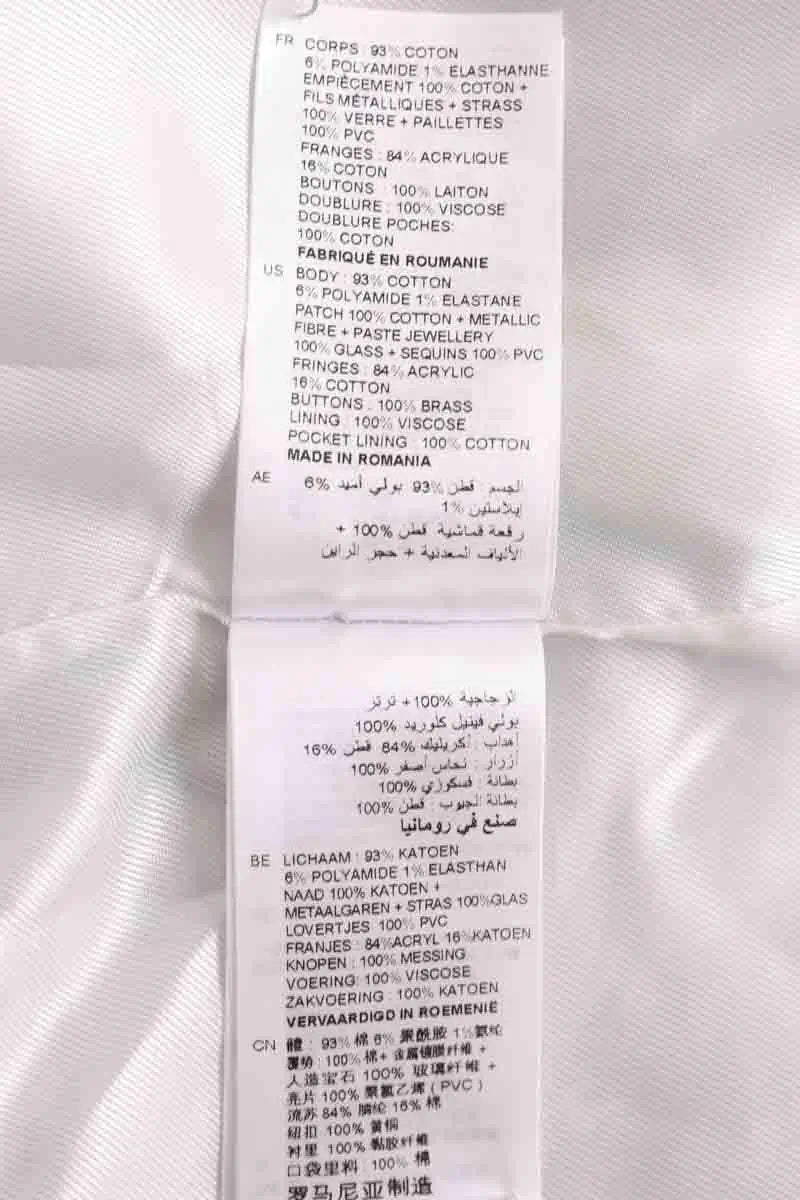 FR CORPS : 93% COTON
6% POLYAMIDE 1% ELASTHANNE
EMPIÈCEMENT 100% COTON +
FILS MÉTALLIQUES + STRASS
100% VERRE + PAILLETTES
100% PVC
FRANGES : 84% ACRYLIQUE
16% COTON
BOUTONS : 100% LAITON
DOUBLURE : 100% VISCOSE
DOUBLURE POCHES:
100% COTON
FABRIQUÉ EN ROUMANIE
US BODY : 93% COTTON
6% POLYAMIDE 1% ELASTANE
PATCH 100% COTTON + METALLIC
FIBRE + PASTE JEWELLERY
100% GLASS + SEQUINS 100% PVC
FRINGES : 84% ACRYLIC
16% COTTON
BUTTONS : 100% BRASS
LINING : 100% VISCOSE
POCKET LINING : 100% COTTON
MADE IN ROMANIA
AE الجسم : قطن 93% بولي أميد 6%
إيلاستين 1%
رقعة قماشية قطن 100% +
الألياف المعدنية + حجر الراين
الزجاجية 100% + ترتر
بولي فينيل كلوريد 100%
أهداب : أكريليك 84% قطن 16%
أزرار : نحاس أصفر 100%
بطانة : فسكوزي 100%
بطانة الجيوب : قطن 100%
صنع في رومانيا
BE LICHAAM : 93% KATOEN
6% POLYAMIDE 1% ELASTHAN
NAAD 100% KATOEN +
METAALGAREN + STRAS 100%GLAS
LOVERTJES 100% PVC
FRANJES : 84%ACRYL 16%KATOEN
KNOPEN : 100% MESSING
VOERING: 100% VISCOSE
ZAKVOERING : 100% KATOEN
VERVAARDIGD IN ROEMENIË
CN 體 : 93% 棉 6% 聚酰胺 1% 氨纶
覆势 : 100% 棉 + 金属镀膜纤维 +
人造宝石 100% 玻璃纤维 +
亮片 100% 聚氯乙烯 ( PVC )
流苏 84% 腈纶 16% 棉
纽扣 100% 黄铜
衬里 100% 黏胶纤维
口袋里料 : 100% 棉
罗马尼亚制造